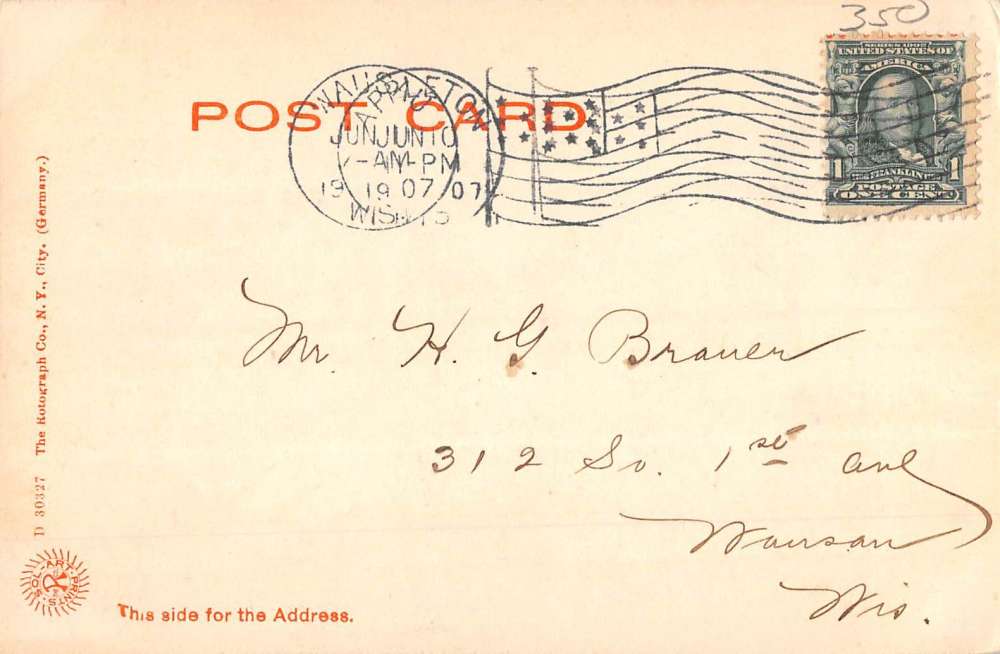 350
SERIES 1902
UNITED STATES OF
AMERICA
1 FRANKLIN 1
POSTAGE
ONE CENT
POST CARD
JUN JUN 10
AM-PM
19 19 07 07
WIS.
Mr. H. G. Brauer
312 So. 1st ave
Wausau
Wis.
D 30327 The Rotograph Co., N. Y., City. (Germany.)
SOL-ART PRINTS
R
This side for the Address.